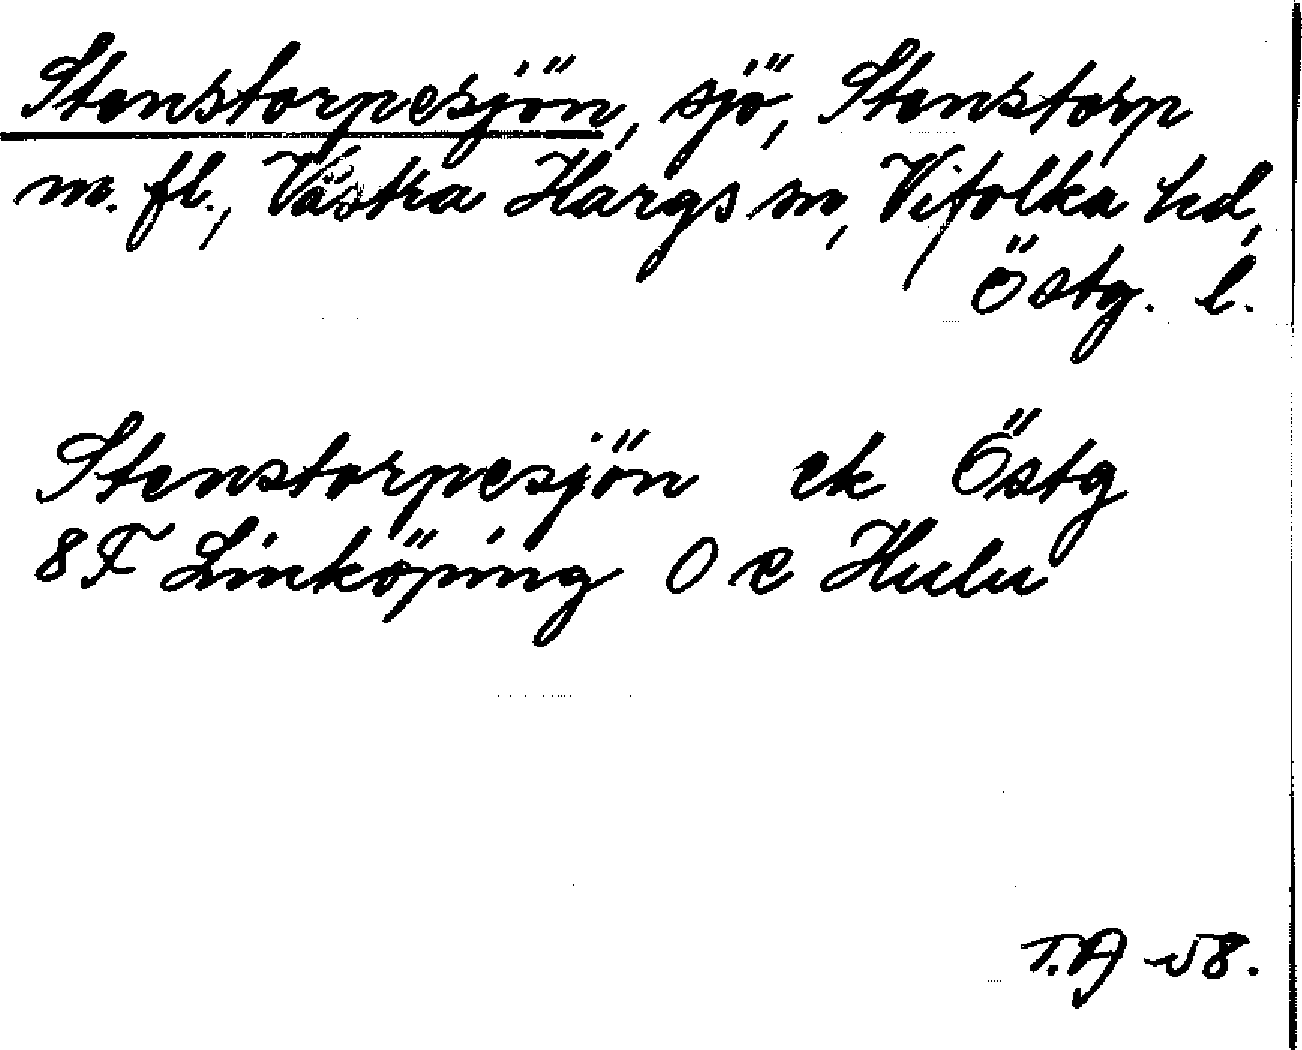 Stenstorpesjön, sjö, Stenstorp
m. fl., Västra Hargs sn, Vifolka hd,
Östg. l.
Stenstorpesjön ek Östg
8F Linköping O c Hulu
T.A -58.